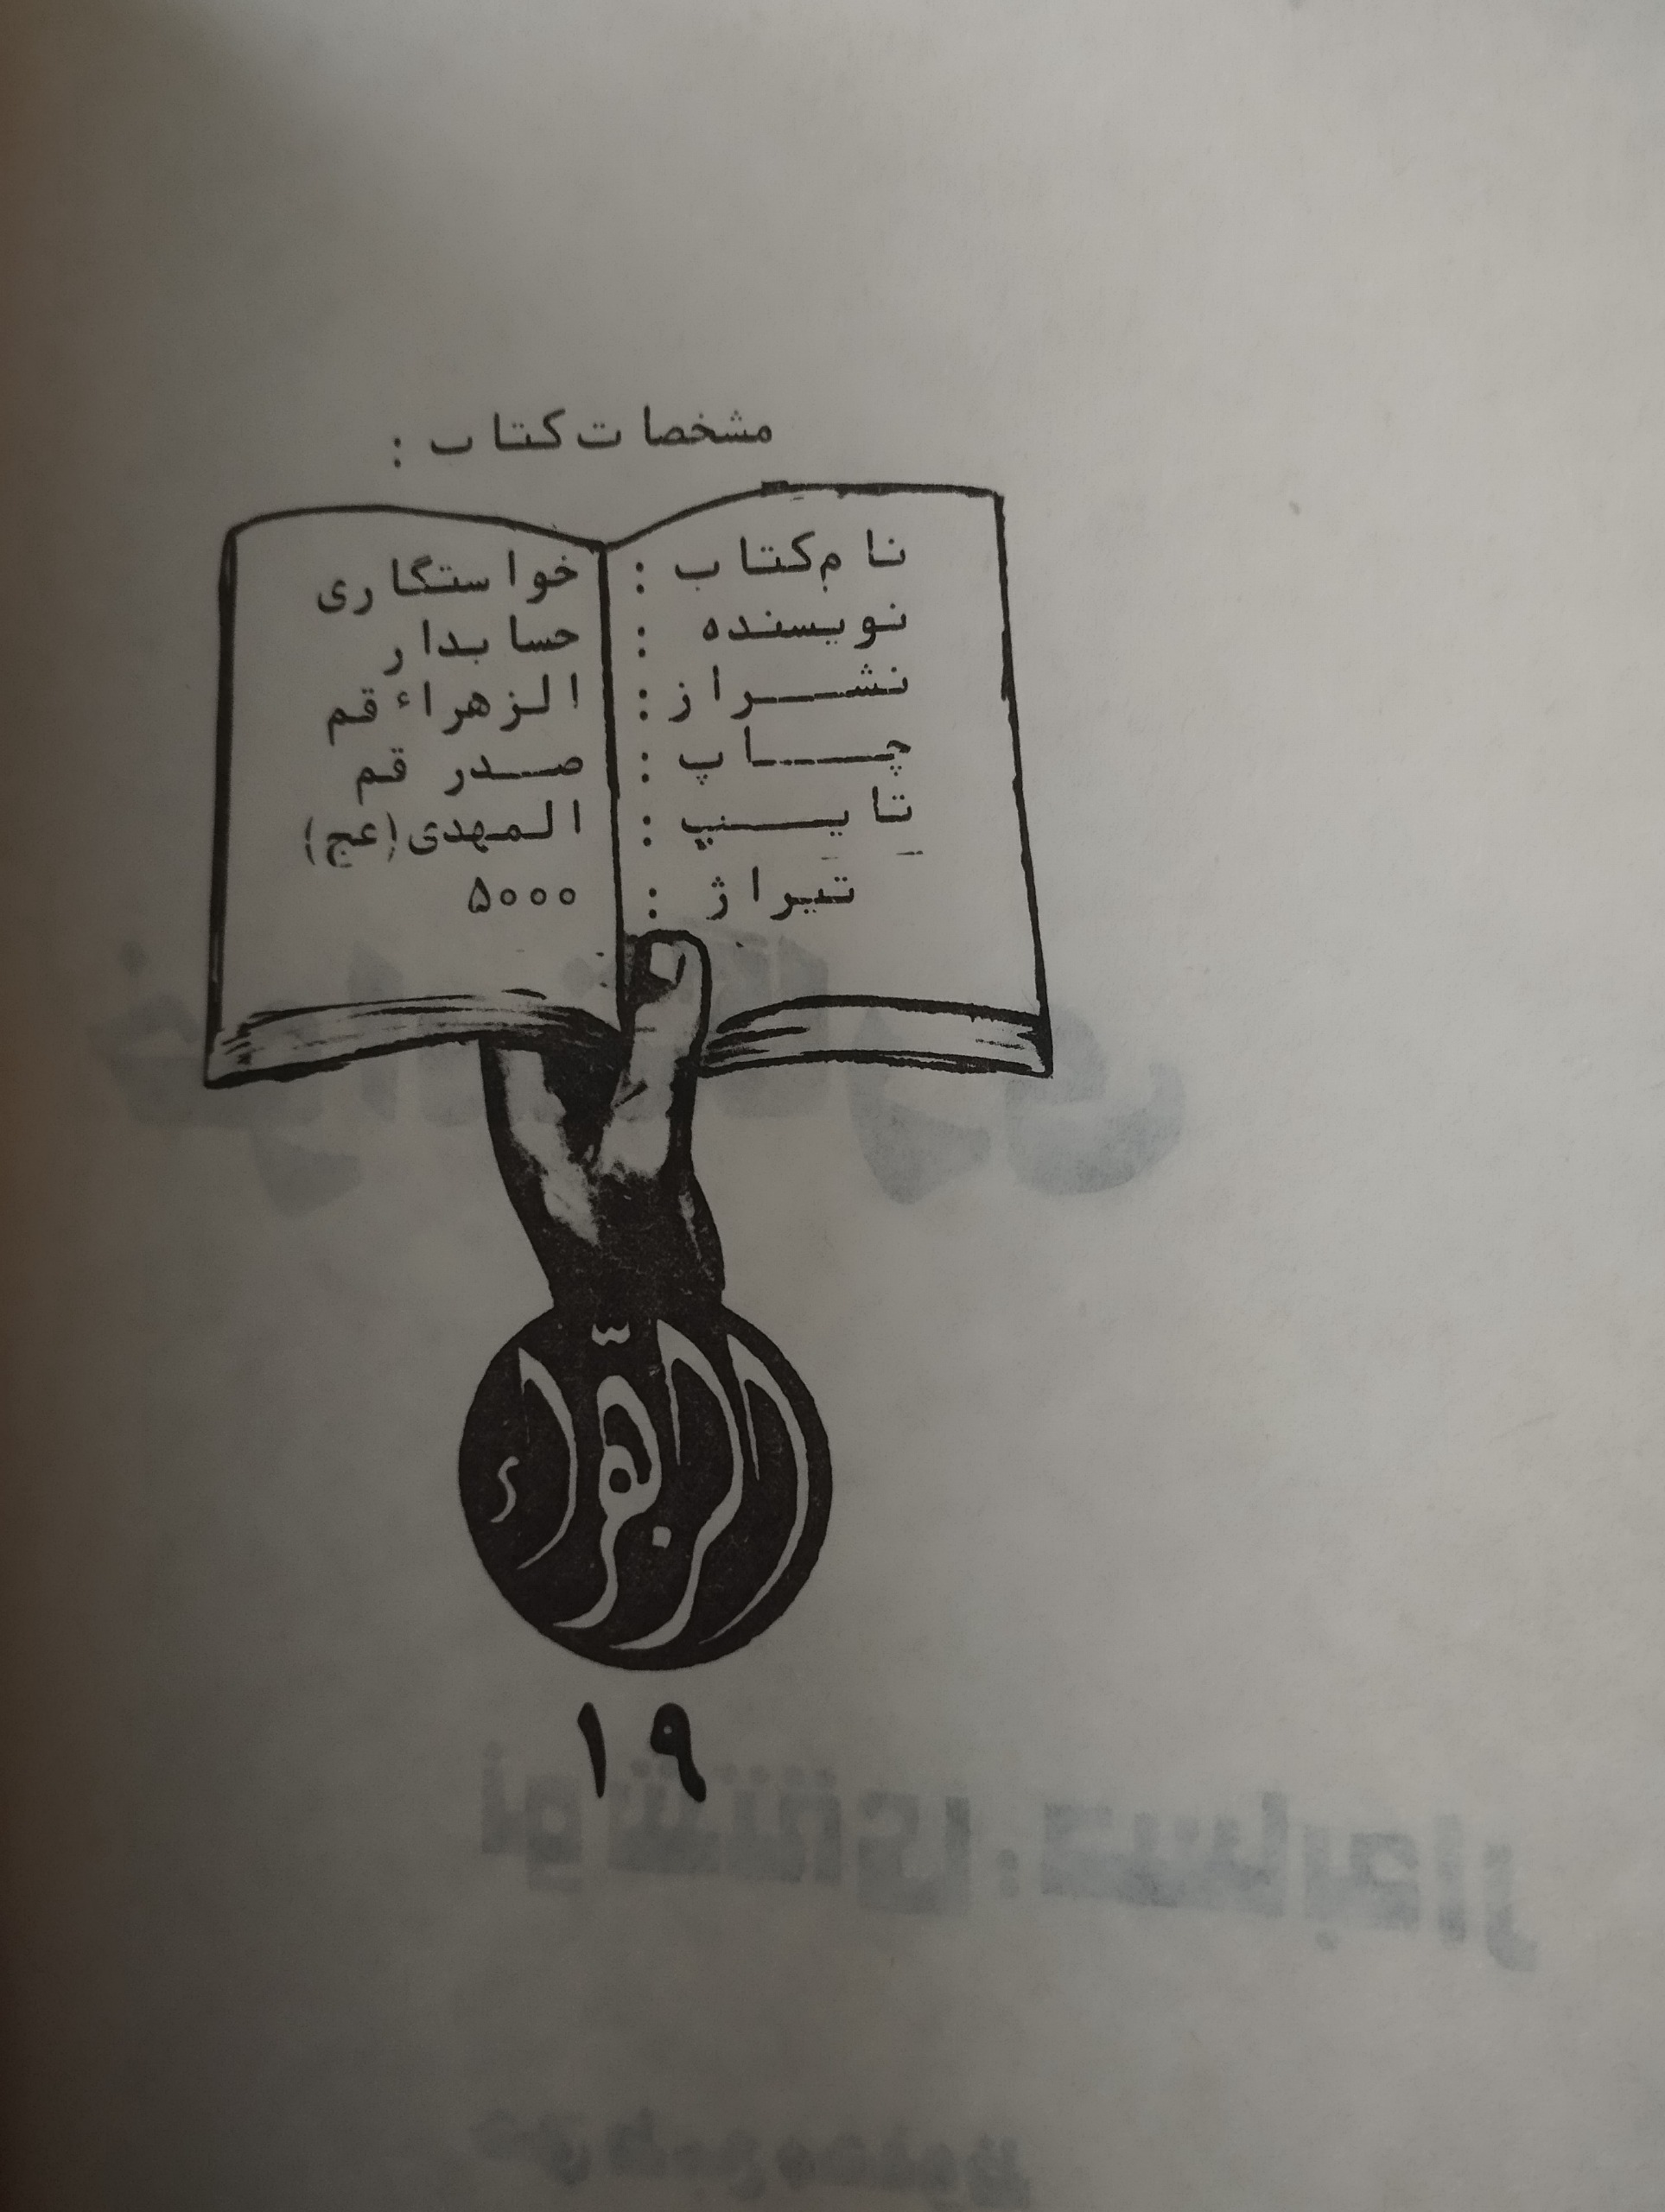 مشخصات کتاب :
نام کتاب : خواستگاری
نویسنده : حسابدار
نشر از : الزهراء قم
چاپ : صدر قم
تایپ : المهدی (عج)
تیراژ : ۵۰۰۰
الزهراء
۱۹
خواستگاری
نوشته‌ی : حسابدار